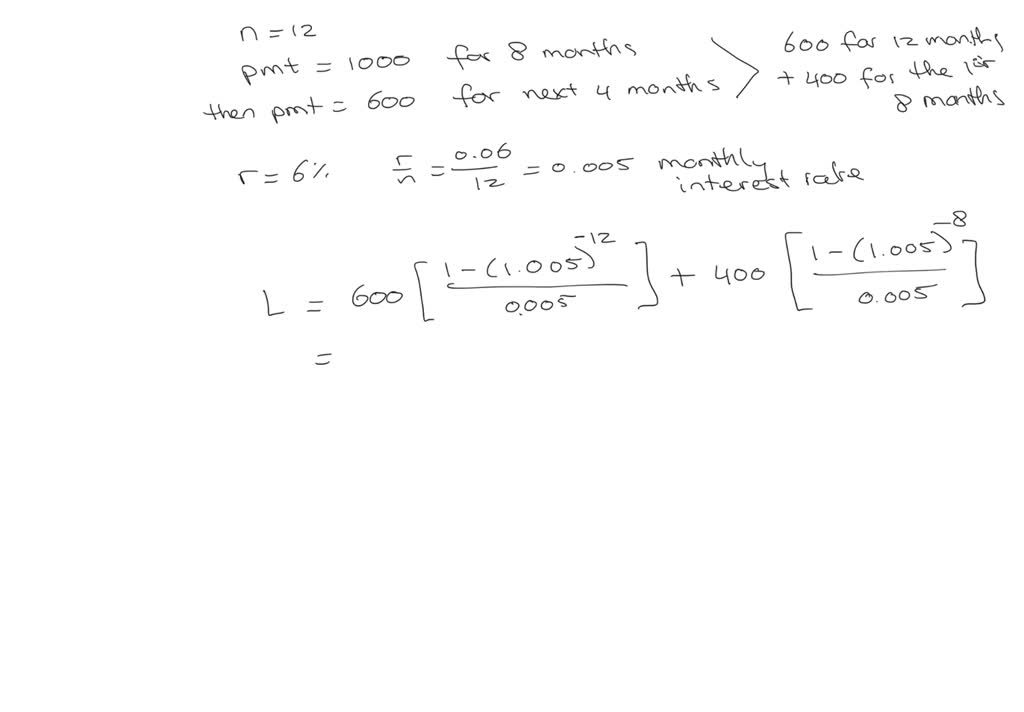 n = 12
pmt = 1000 for 8 months
then pmt = 600 for next 4 months
600 for 12 months
+ 400 for the 1st
8 months
r = 6% r/n = 0.06/12 = 0.005 monthly
interest rate
L = 600 [ 1 - (1.005)^-12 / 0.005 ] + 400 [ 1 - (1.005)^-8 / 0.005 ]
=